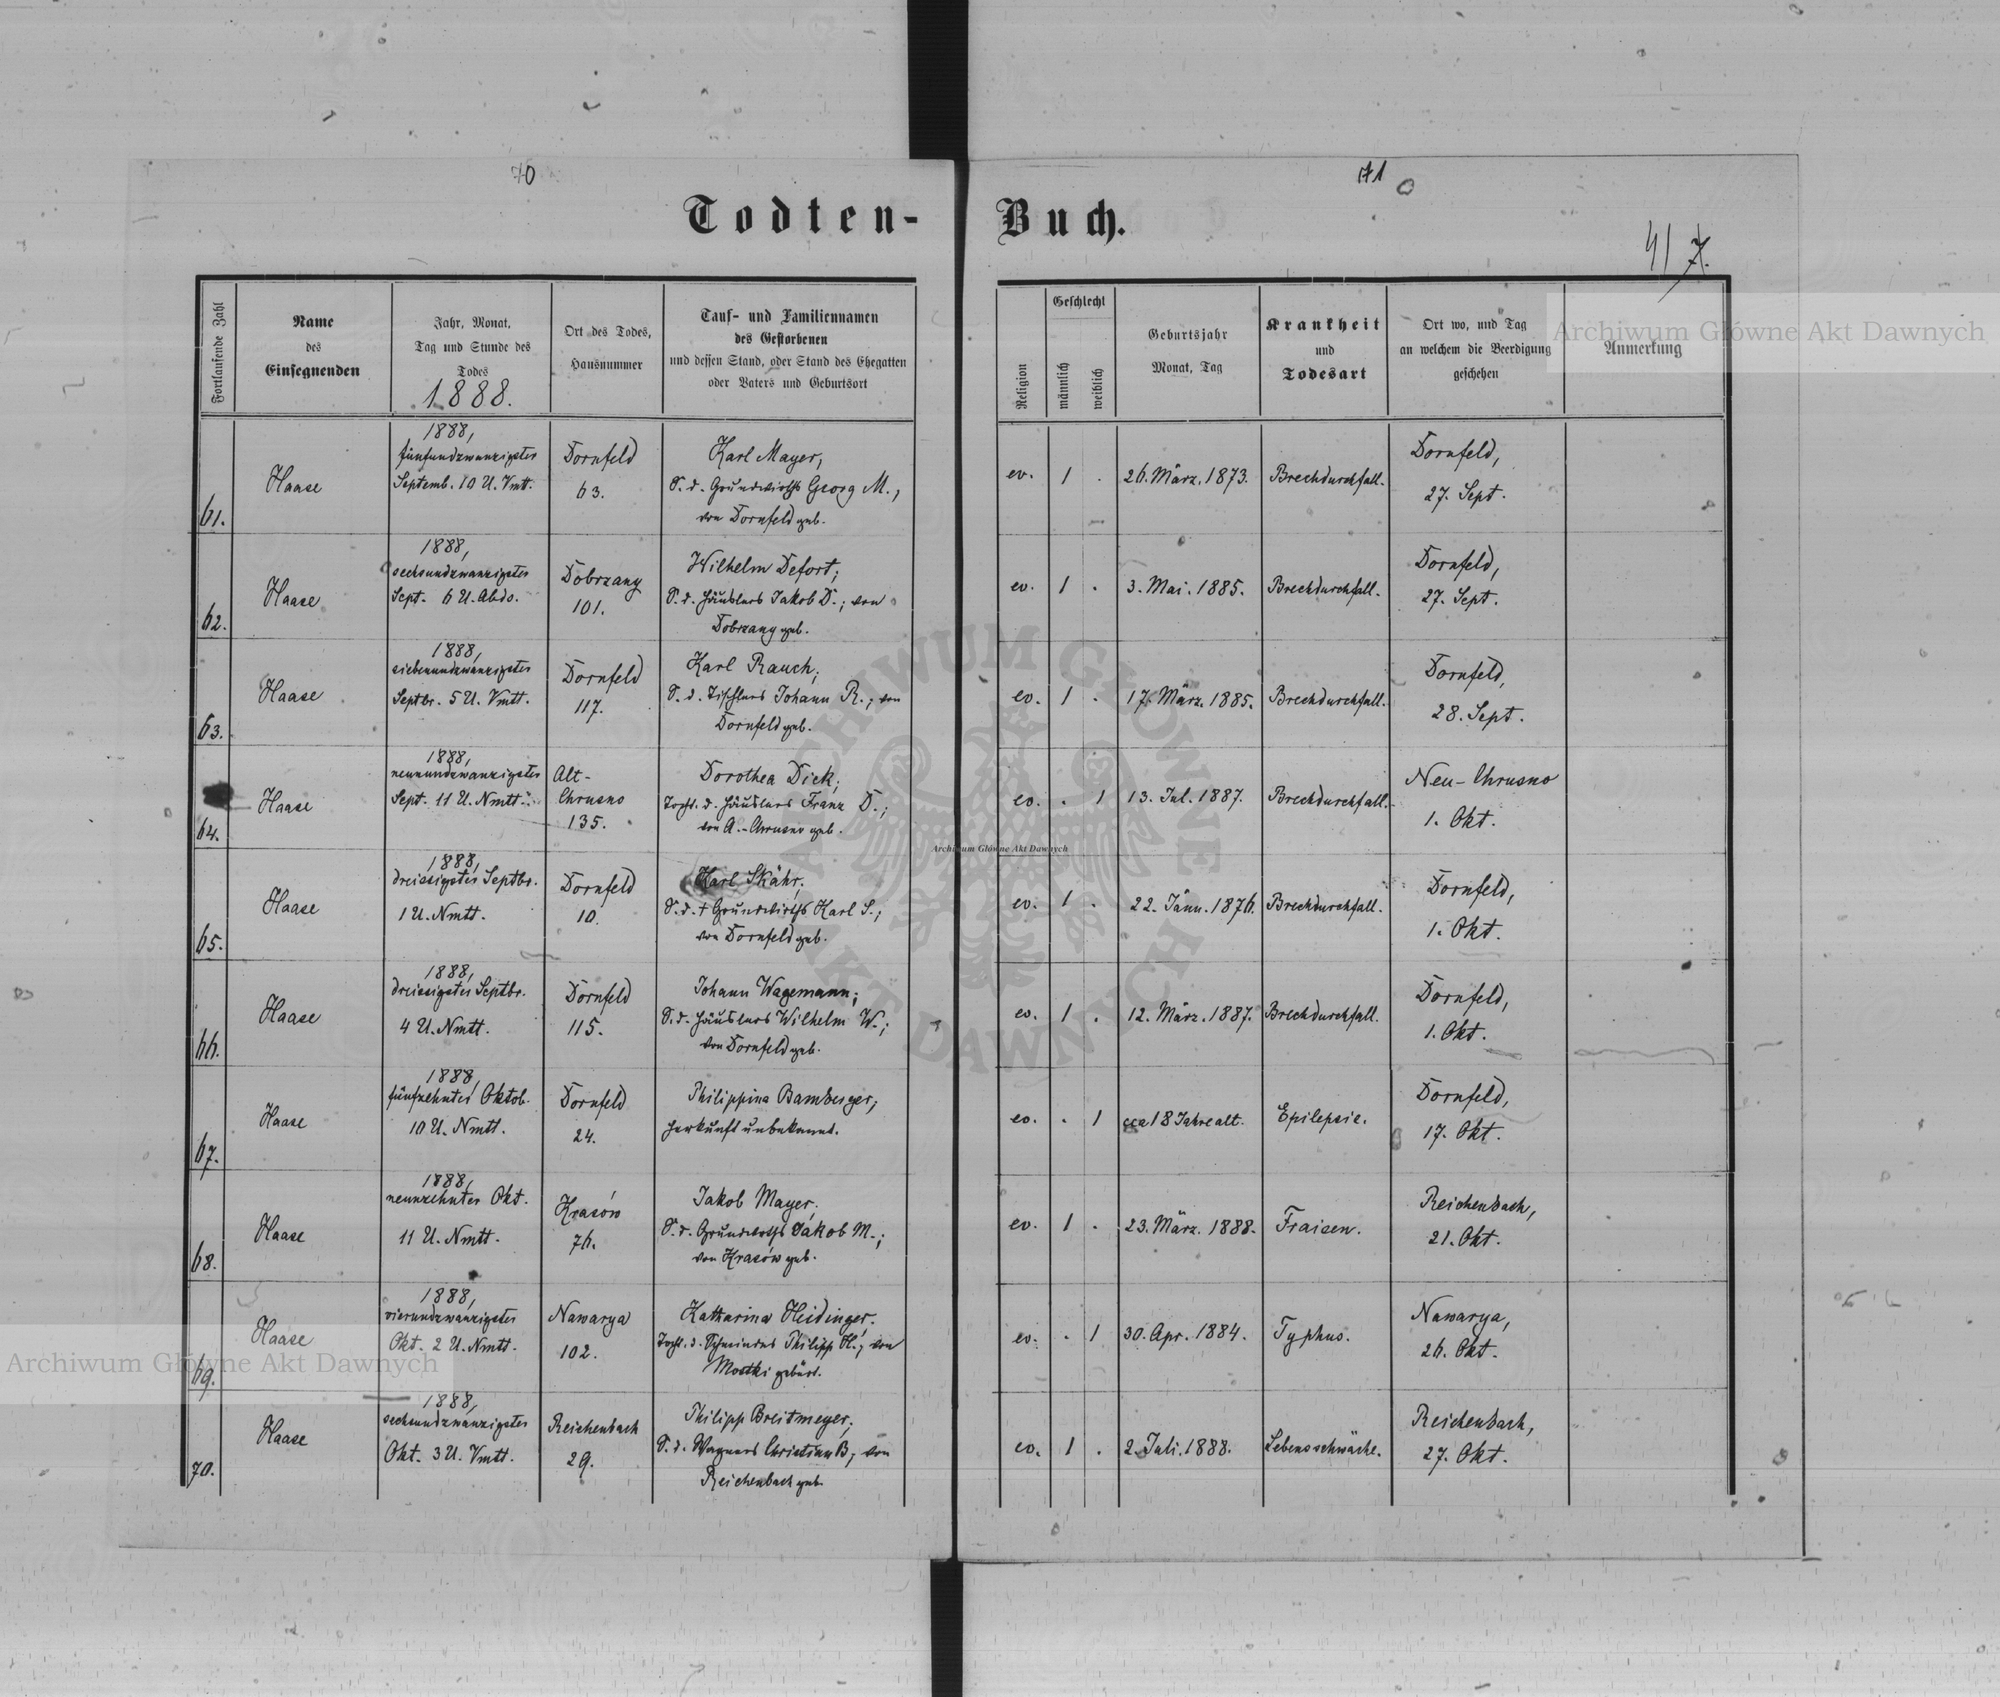 70
71
Todten-Buch.
41 7.
Fortlaufende Zahl
Name
des
Einsegnenden
Jahr, Monat,
Tag und Stunde des
Todes
1888.
Ort des Todes,
Hausnummer
Tauf- und Familiennamen
des Gestorbenen
und dessen Stand, oder Stand des Ehegatten
oder Vaters und Geburtsort
Religion
Geschlecht
männlich
weiblich
Geburtsjahr
Monat, Tag
Krankheit
und
Todesart
Ort wo, und Tag
an welchem die Beerdigung
geschehen
Anmerkung
61.
Haase
1888,
fünfundzwanzigster
Septemb. 10 U. Vmtt.
Dornfeld
63.
Karl Mayer,
S. d. Grundwirths Georg M.,
von Dornfeld geb.
ev. 1 .
26. März. 1873.
Brechdurchfall.
Dornfeld,
27. Sept.
62.
Haase
1888,
sechsundzwanzigster
Sept. 6 U. Abds.
Dobrzany
101.
Wilhelm Defort;
S. d. Häuslers Jakob D.; von
Dobrzany geb.
ev. 1 .
3. Mai. 1885.
Brechdurchfall.
Dornfeld,
27. Sept.
63.
Haase
1888,
siebenundzwanzigster
Septbr. 5 U. Vmtt.
Dornfeld
117.
Karl Rauch;
S. d. Tischlers Johann R.; von
Dornfeld geb.
ev. 1 .
17. März. 1885.
Brechdurchfall.
Dornfeld,
28. Sept.
64.
Haase
1888,
neunundzwanzigster
Sept. 11 U. Nmtt.
Alt-
Chrusno
135.
Dorothea Dick;
Tocht. d. Häuslers Franz D.;
von A.-Chrusno geb.
ev. . 1
13. Jul. 1887.
Brechdurchfall.
Neu-Chrusno
1. Okt.
65.
Haase
1888,
dreissigster Septbr.
1 U. Nmtt.
Dornfeld
10.
Karl Skähr;
S. d. † Grundwirths Karl S.;
von Dornfeld geb.
ev. 1 .
22. Jänn. 1876.
Brechdurchfall.
Dornfeld,
1. Okt.
66.
Haase
1888,
dreissigster Septbr.
4 U. Nmtt.
Dornfeld
115.
Johann Wagemann;
S. d. Häuslers Wilhelm W.;
von Dornfeld geb.
ev. 1 .
12. März. 1887.
Brechdurchfall.
Dornfeld,
1. Okt.
67.
Haase
1888,
fünfzehnter Oktob.
10 U. Nmtt.
Dornfeld
24.
Philippina Bamberger;
Herkunft unbekannt.
ev. . 1
cca 18 Jahre alt.
Epilepsie.
Dornfeld,
17. Okt.
68.
Haase
1888,
neunzehnter Okt.
11 U. Nmtt.
Krasów
76.
Jakob Mayer;
S. d. Grundwirths Jakob M.;
von Krasów geb.
ev. 1 .
23. März. 1888.
Fraisen.
Reichenbach,
21. Okt.
69.
Haase
1888,
vierundzwanzigster
Okt. 2 U. Nmtt.
Nawarya
102.
Katharina Heidinger;
Tocht. d. Schmiedes Philipp H.; von
Mostki gebürt.
ev. . 1
30. Apr. 1884.
Typhus.
Nawarya,
26. Okt.
70.
Haase
1888,
sechsundzwanzigster
Okt. 3 U. Vmtt.
Reichenbach
29.
Philipp Breitmeyer;
S. d. Wagners Christian B; von
Reichenbach geb.
ev. 1 .
2. Juli. 1888.
Lebensschwäche.
Reichenbach,
27. Okt.
Archiwum Główne Akt Dawnych
Archiwum Główne Akt Dawnych
Archiwum Główne Akt Dawnych
ARCHIWUM GŁÓWNE AKT DAWNYCH